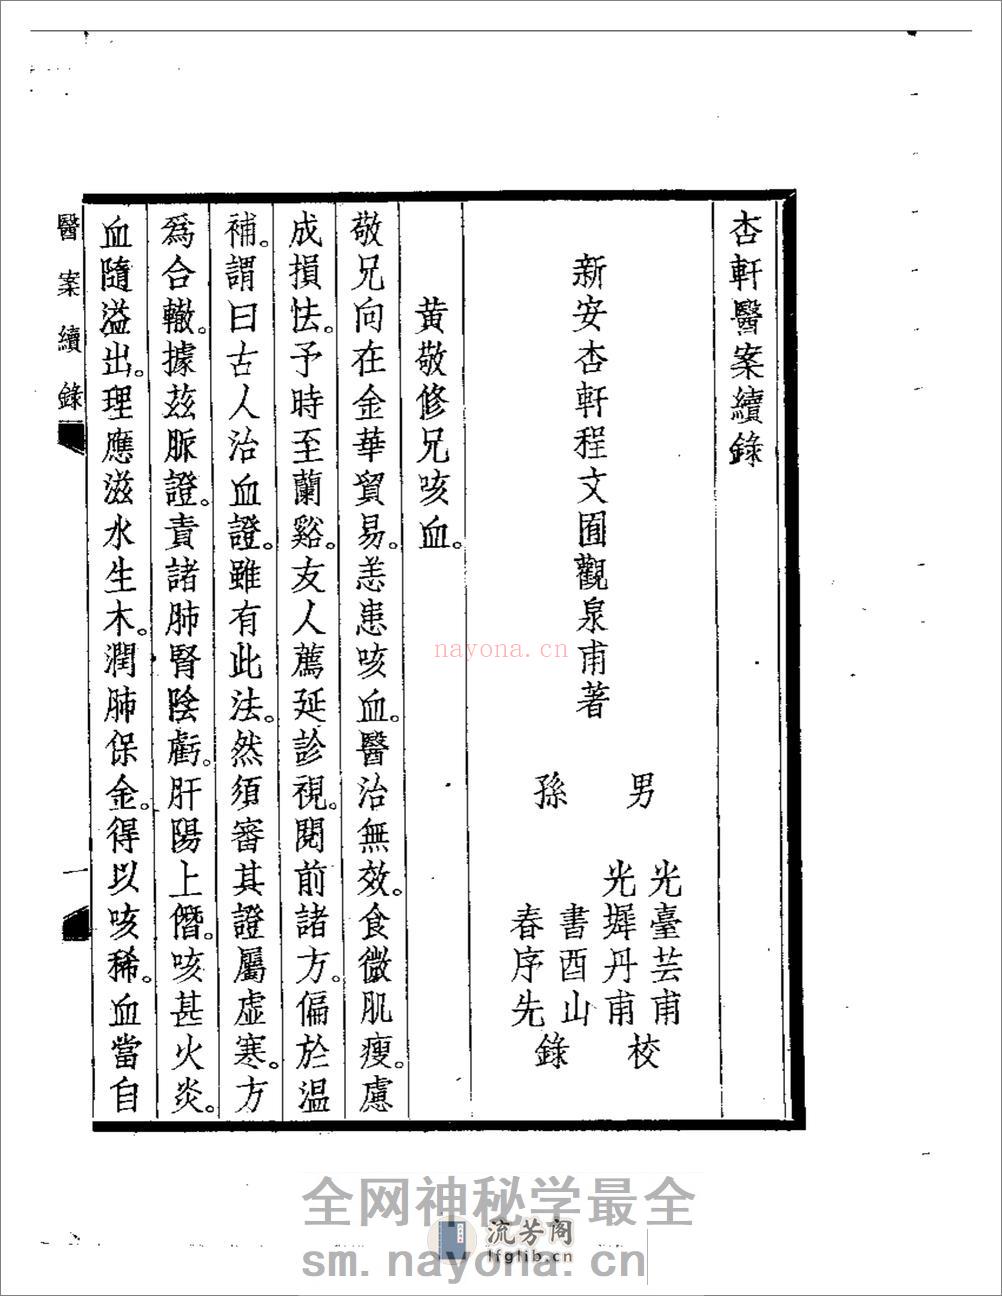 杏軒醫案續錄
新安杏軒程文囿觀泉甫著
男
光臺芸甫
光墀丹甫
校
孫
書酉山
春序先
錄
黃敬修兄咳血。
敬兄向在金華貿易。恙患咳血。醫治無效。食微肌瘦。慮
成損怯。予時至蘭谿。友人薦延診視。閱前諸方。偏於温
補。謂曰古人治血證。雖有此法。然須審其證屬虛寒。方
爲合轍。據茲脈證。責諸肺腎陰虧。肝陽上僭。咳甚火炎。
血隨溢出。理應滋水生木。潤肺保金。得以咳稀。血當自
醫案續錄
一
nayona.cn
全网神秘学最全
流芳阁
lfglib.cn
sm.nayona.cn